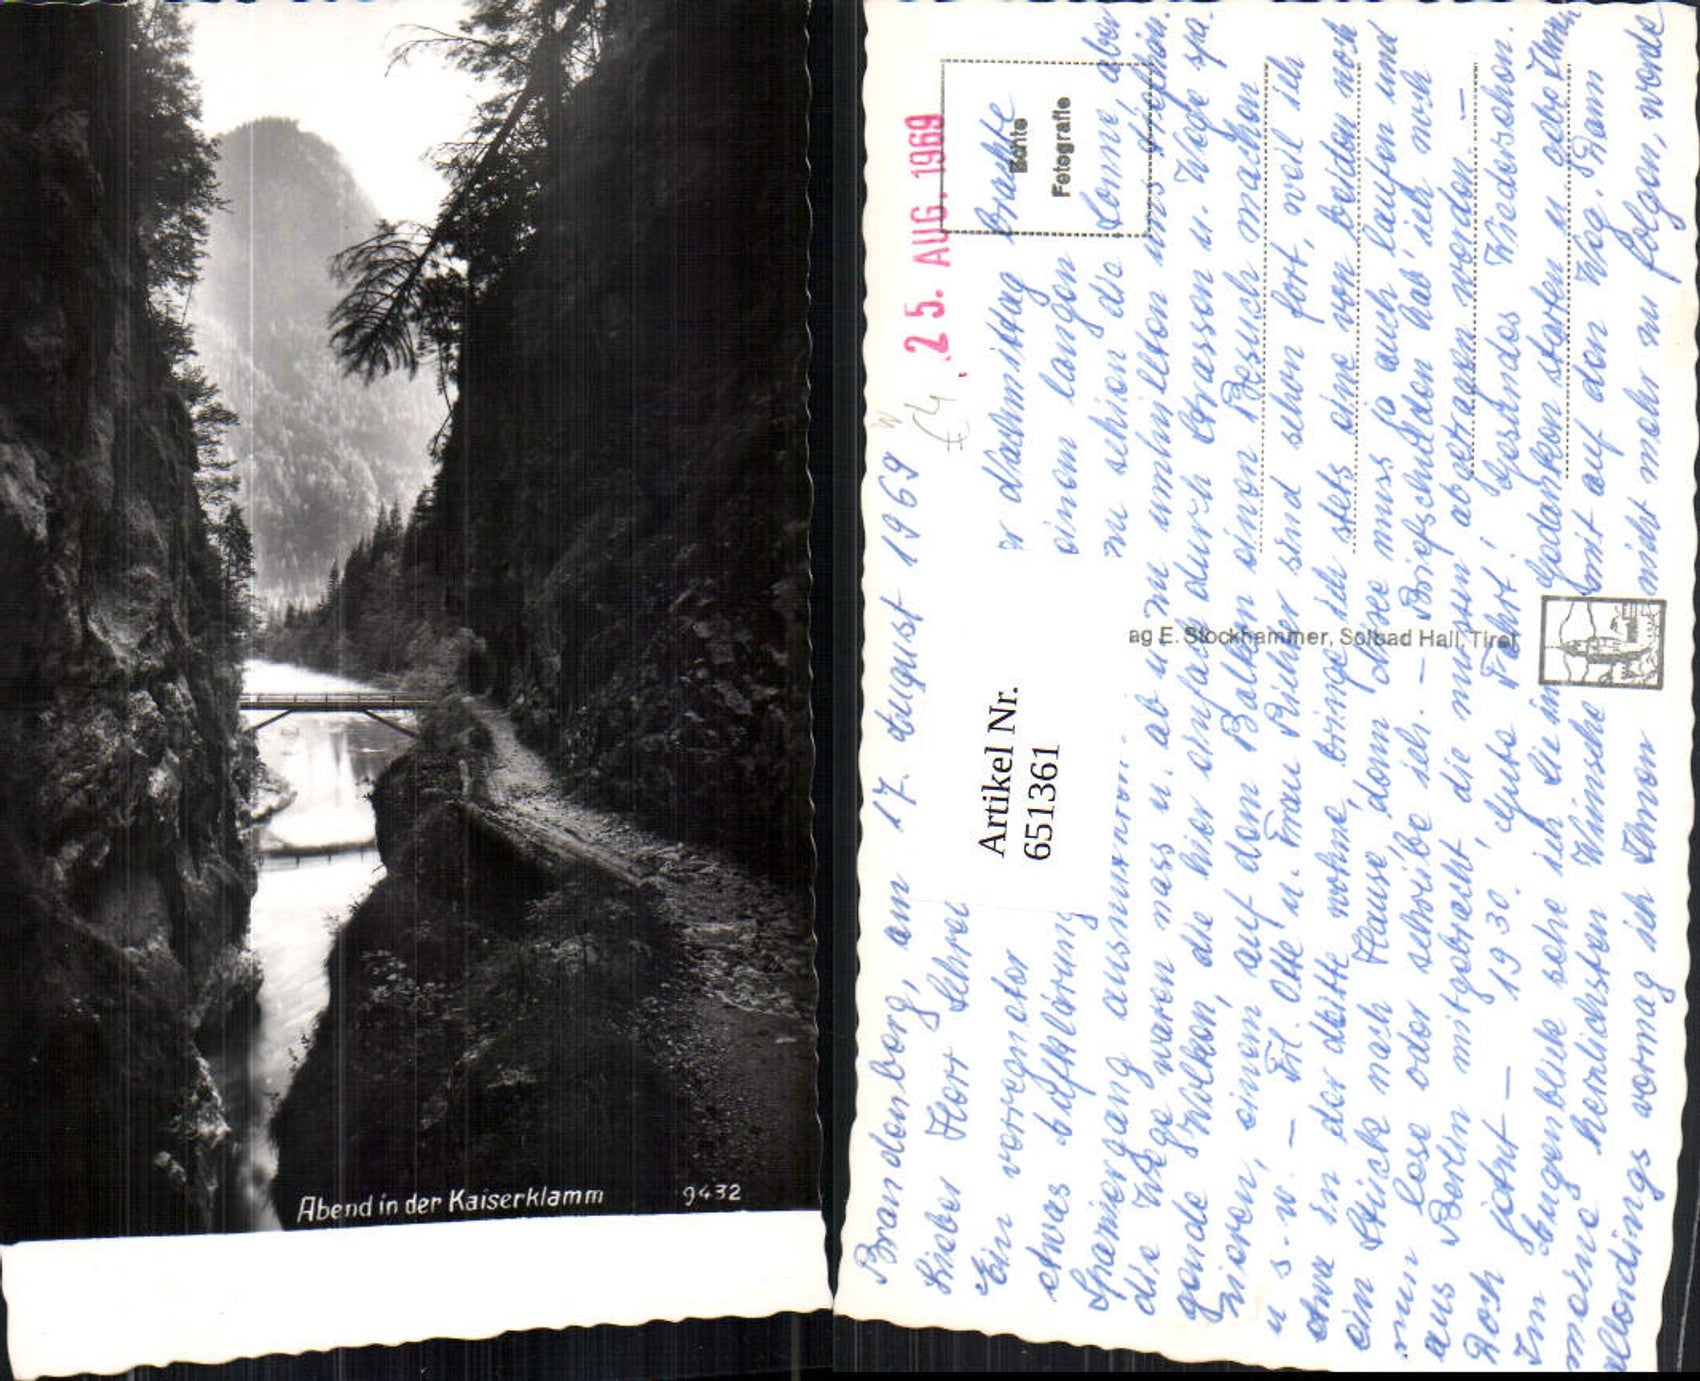 Abend in der Kaiserklamm 9432
25. AUG. 1969
Echte
Fotografie
Artikel Nr.
651361
ag E. Stockhammer, Solbad Hall, Tirol
Brandenberg, am 17. August 1969
Lieber Herr
Ein verregneter Nachmittag brachte
etwas Aufklärung einem langen
Spaziergang zu schien die Sonne, aber
die Wege waren nass u. ab u. zu umhüllten uns
gende Wolken, die hier einfach durch Strassen u. Wege spa-
zieren, einem auf den Balkon einen Besuch machen
u. s. w. — Frl. Otte u. Frau Richter sind schon fort, weil ich
etwa in der dritte wohne, bringe ich stets eine von beiden noch
ein Stück nach Hause, dann muss ja auch laufen und
nun lese oder schreibe ich. — Briefschulden hab' ich noch
aus Berlin mitgebracht, die müssen abgetragen werden. —
Doch jetzt — 1930. Gute Fahrt! Gesundes Wiedersehen.
Im Augenblick sehe ich Sie in Gedanken starten u. gebe Ihnen
meine herzlichsten Wünsche mit auf den Weg. Dann
allerdings vermag ich Ihnen nicht mehr zu folgen, werde